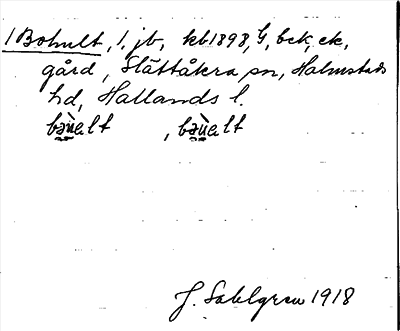 1 Bohult, 1. jb, kb 1898, G, bck, ek,
gård, Slättåkra sn, Halmstads
hd, Hallands l.
J. Sahlgren 1918